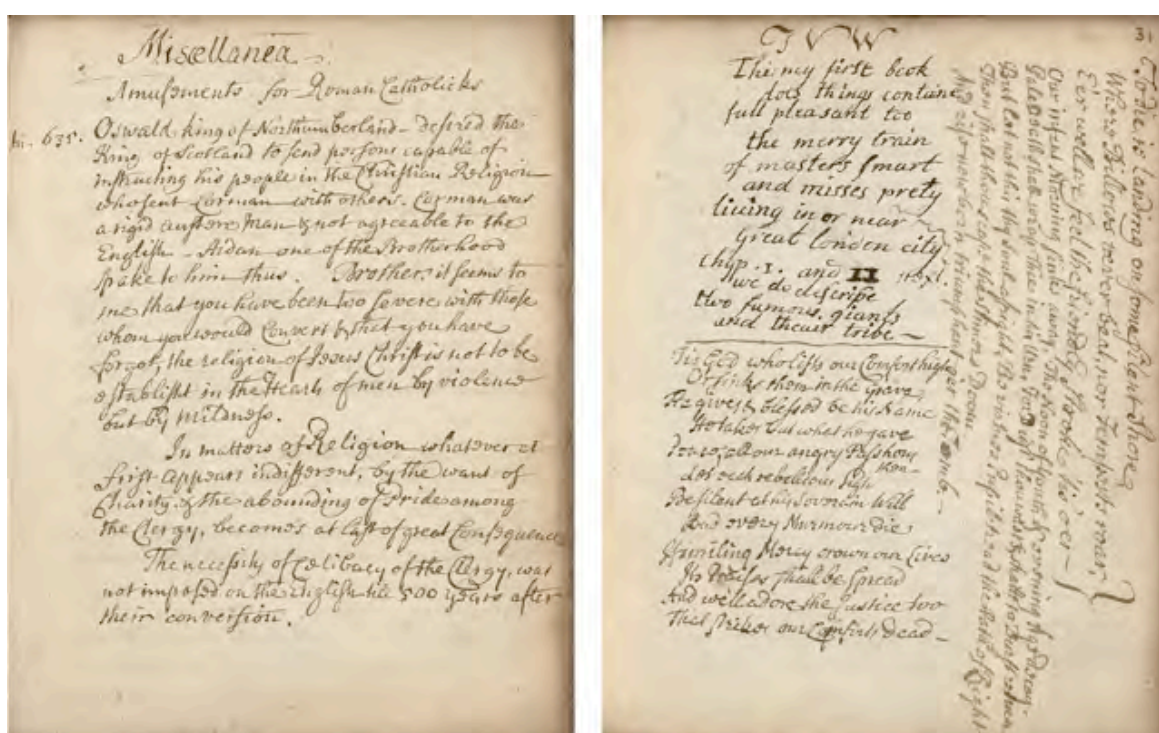 Miscellanea
Amusements for Roman Catholicks
635. Oswald king of Northumberland - desired the
King of Scotland to send persons capable of
instructing his people in the Christian Religion
who sent Corman with others. Corman was
a rigid austere man & not agreeable to the
English - Aidan one of the Brotherhood
spake to him thus. Brother, it seems to
me that you have been too severe with those
whom you would Convert & that you have
forgot, the religion of Jesus Christ is not to be
establisht in the Hearts of men by violence
but by mildness.
In matters of Religion whatever at
first appears indifferent, by the want of
Charity & the abounding of Pride among
the Clergy, becomes at last of great Consequence
The necessity of Celibacy of the Clergy, was
not imposed on the English till 500 years after
their conversion.
31
T V W
The my first book
does things containe
full pleasant too
the merry train
of masters smart
and misses prety
living in or near
great london city
Chap. 1. and II
we do discribe
two famous giants
and theair tribe -
Tis God who lifts our Comforts high
Or sinks them in the Grave
He gives & blessed be his Name
He takes but what he gave
Peace, all our angry Passions
then -
Let each rebellious sigh
Be silent at his Sovraign Will
And every Murmour die
If smiling Mercy crown our Lives
Its Praises shall be spread
And we'll adore the Justice too
That strikes our Comforts dead -
To die, is Landing on some silent Shore
Where Billows never beat, nor Tempests roar,
E'er well we feel the friendly Stroke, tis o'er -
Our infant Morning sinks away, The Noon of Youth & evening Age decay
But let not this thy Soul affright,
Then shalt thou scape
triumphant o'er the Tomb. -